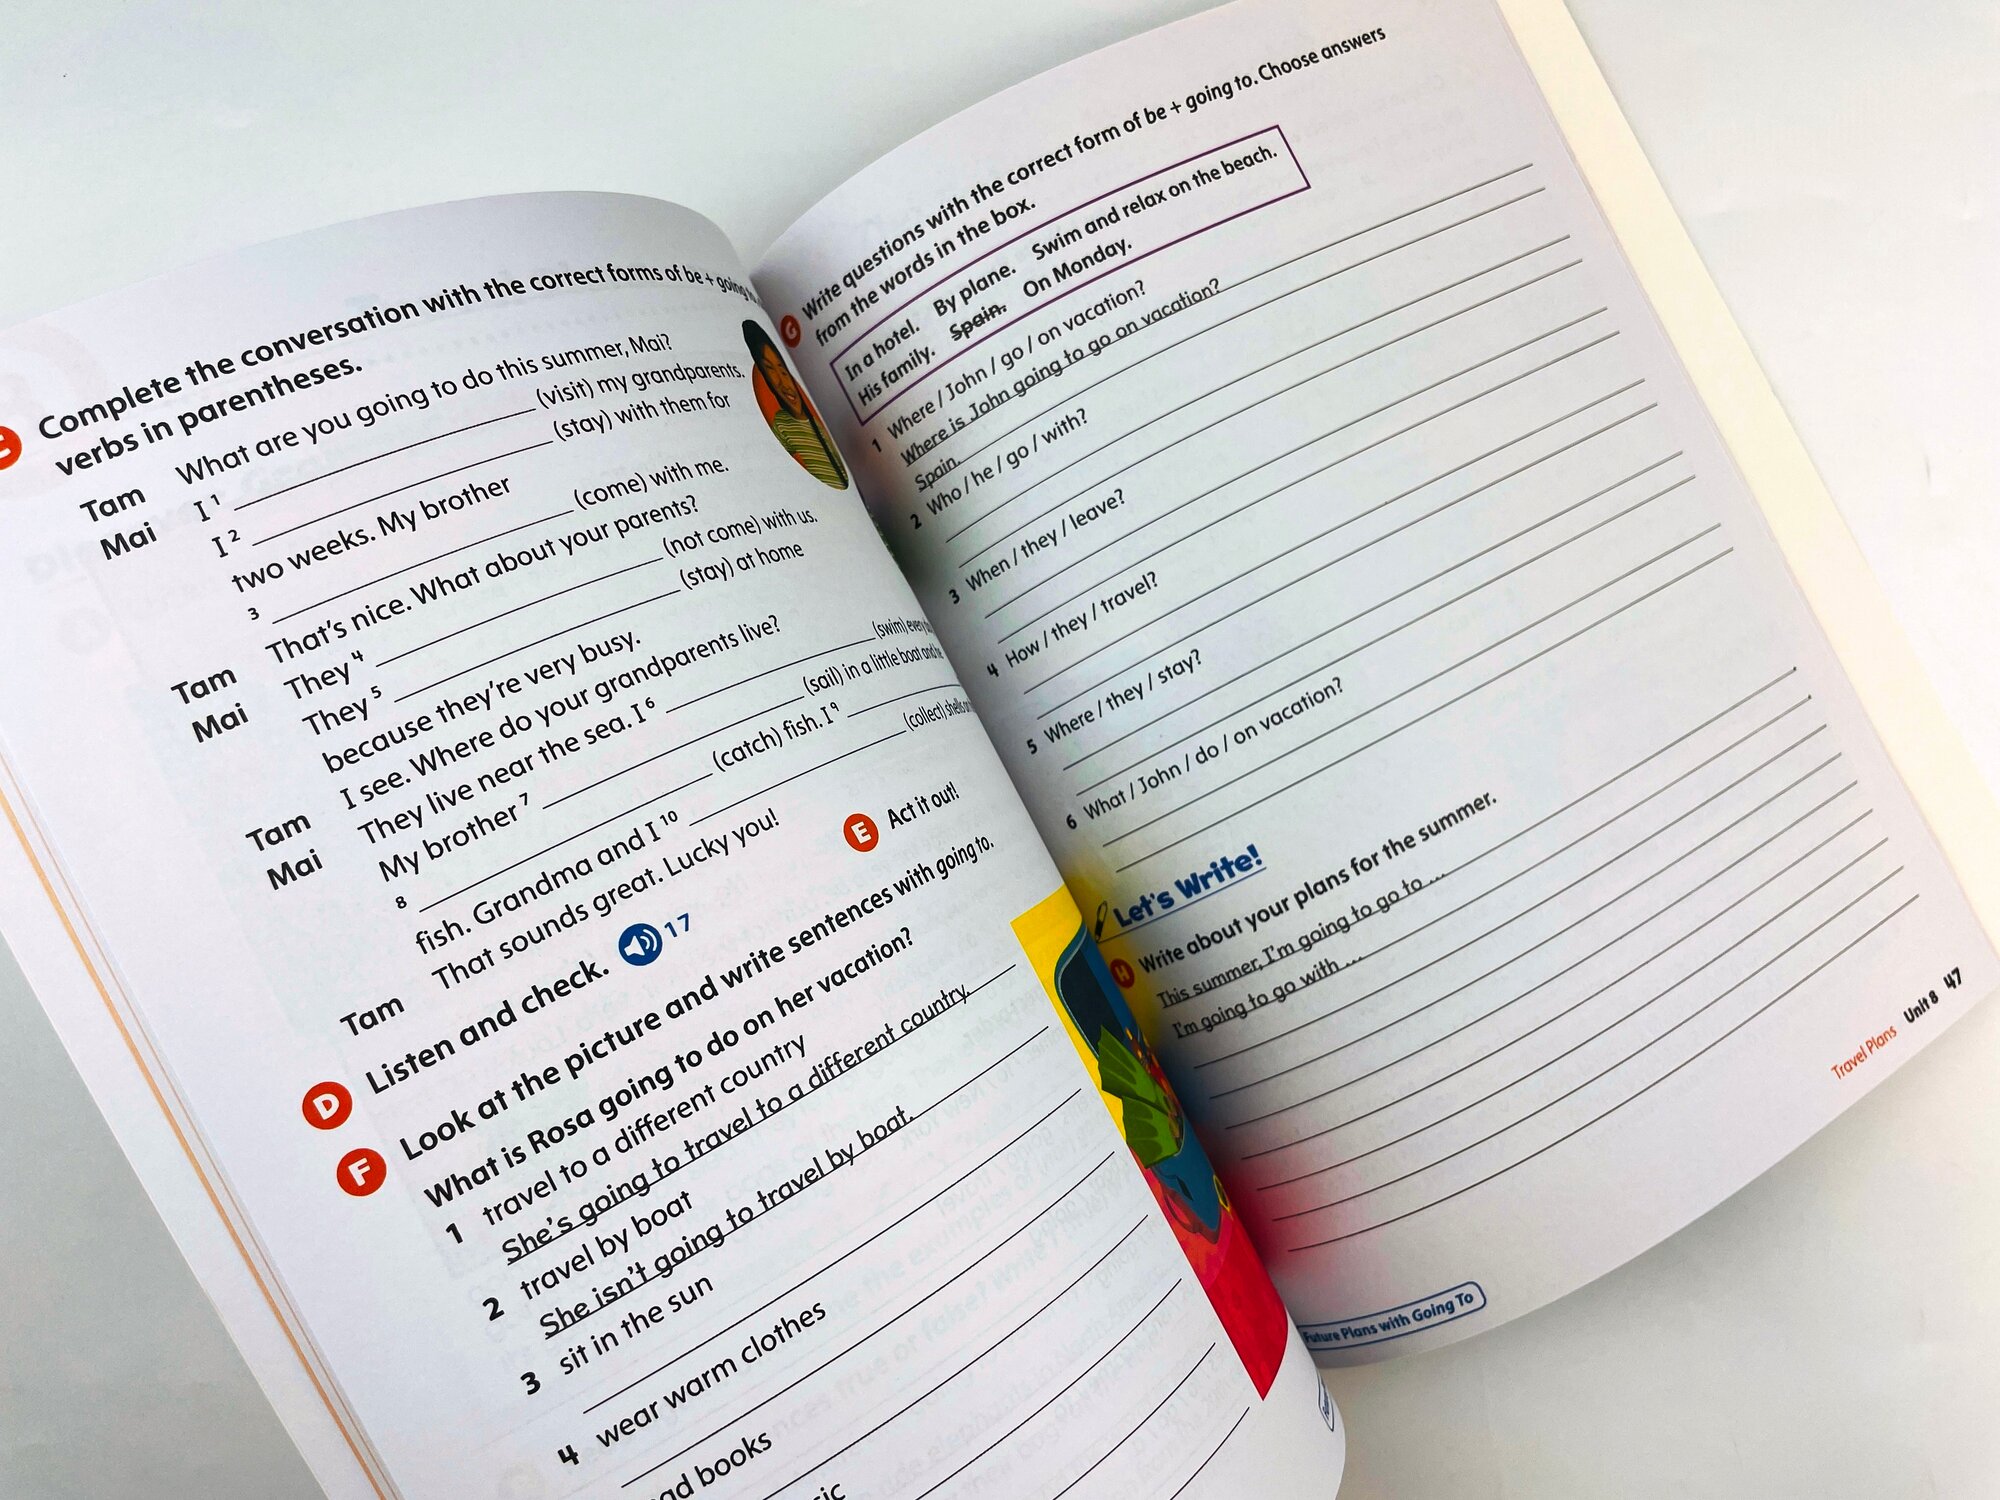 C Complete the conversation with the correct forms of be + going to
verbs in parentheses.
Tam What are you going to do this summer, Mai?
Mai I 1 (visit) my grandparents.
I 2 (stay) with them for
two weeks. My brother
3 (come) with me.
Tam That's nice. What about your parents?
Mai They 4 (not come) with us.
They 5 (stay) at home
because they're very busy.
Tam I see. Where do your grandparents live?
Mai They live near the sea. I 6 (swim) every
My brother 7 (sail) in a little boat and
8 (catch) fish. I 9
fish. Grandma and I 10 (collect) shells
Tam That sounds great. Lucky you!
D Listen and check. 17
E Act it out!
F Look at the picture and write sentences with going to.
What is Rosa going to do on her vacation?
1 travel to a different country
She's going to travel to a different country.
2 travel by boat
She isn't going to travel by boat.
3 sit in the sun
4 wear warm clothes
books
G Write questions with the correct form of be + going to. Choose answers
from the words in the box.
In a hotel. By plane. Swim and relax on the beach.
His family. Spain. On Monday.
1 Where / John / go / on vacation?
Where is John going to go on vacation?
Spain.
2 Who / he / go / with?
3 When / they / leave?
4 How / they / travel?
5 Where / they / stay?
6 What / John / do / on vacation?
Let's Write!
H Write about your plans for the summer.
This summer, I'm going to go to ...
I'm going to go with ...
Travel Plans Unit 8 47
Future Plans with Going To